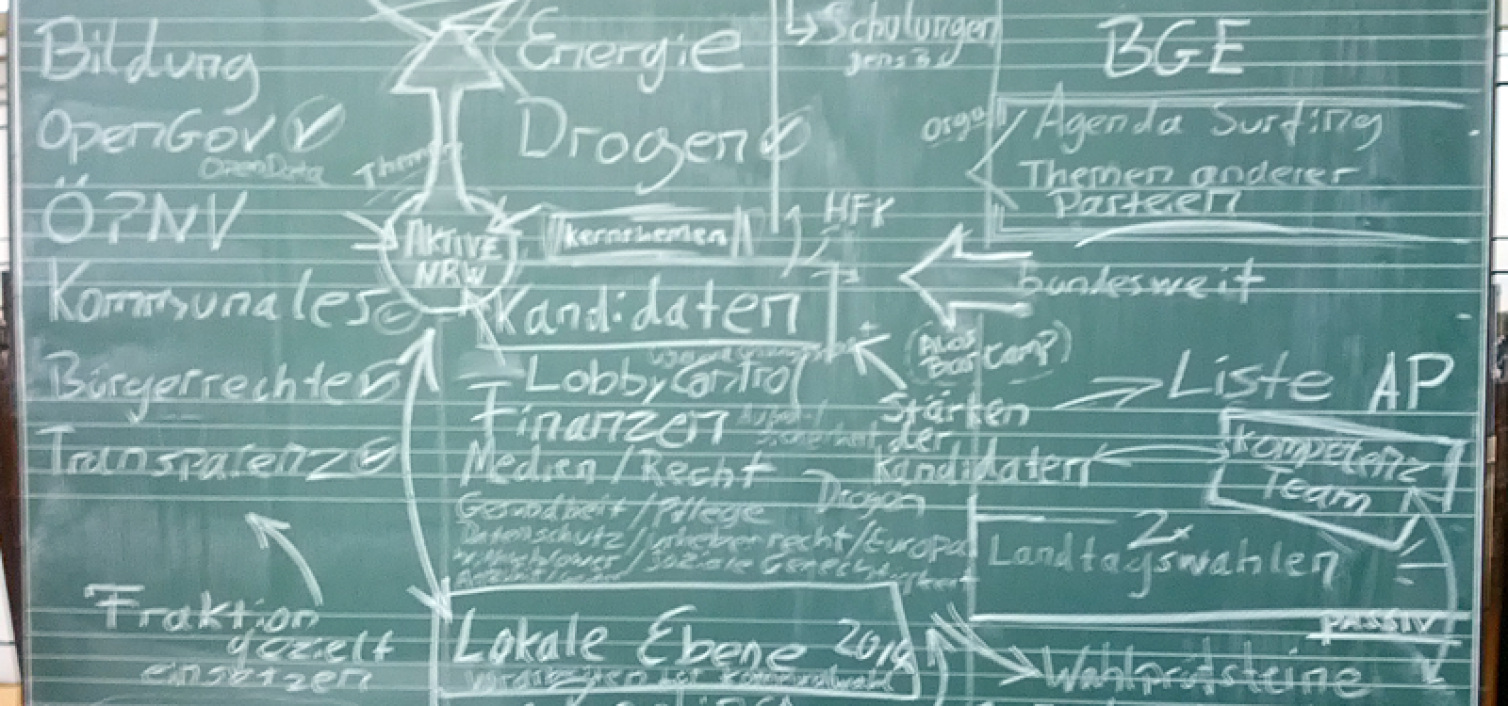 Bildung
OpenGov
OpenData
ÖPNV
Kommunales
Bürgerrechte
Transparenz
Fraktion
gezielt
einsetzen
Themen
AKTIVE
NRW
Energie
Drogen
Kernthemen
Kandidaten
LobbyControl
Finanzen
Medien / Recht
Drogen
Gesundheit / Pflege
Datenschutz / Urheberrecht / Europa
Whistleblower / Soziale Gerechtigkeit
Lokale Ebene
Schulungen
Stärken
der
Kandidaten
BGE
Orga
Agenda Surfing
Themen anderer
Parteien
bundesweit
Liste AP
Kompetenz
Team
2x
Landtagswahlen
PASSIV
Wahlprüfsteine